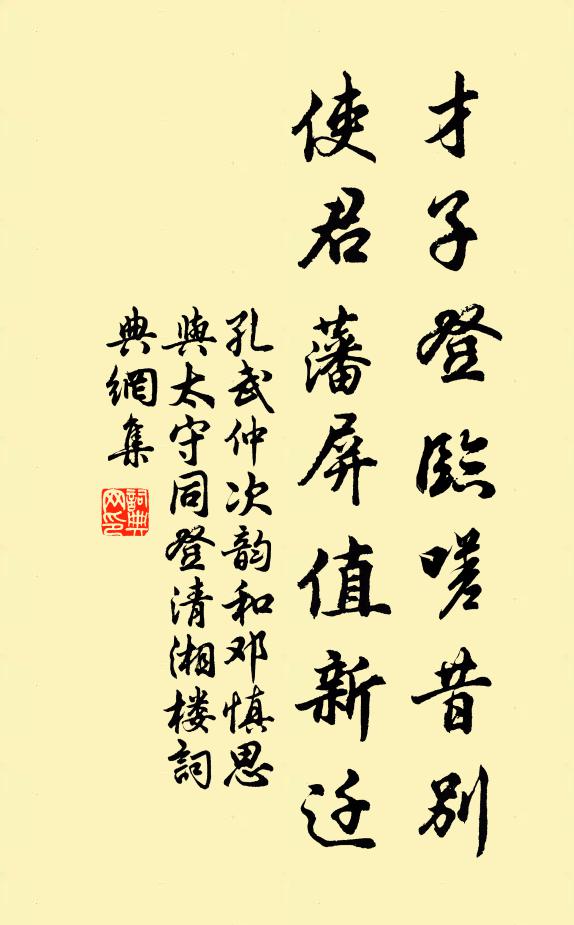 才子登臨嗟昔別
使君藩屏值新迁
孔武仲次韵和邓慎思
與太守同登清湘楼詞
典網集
詞典
网印